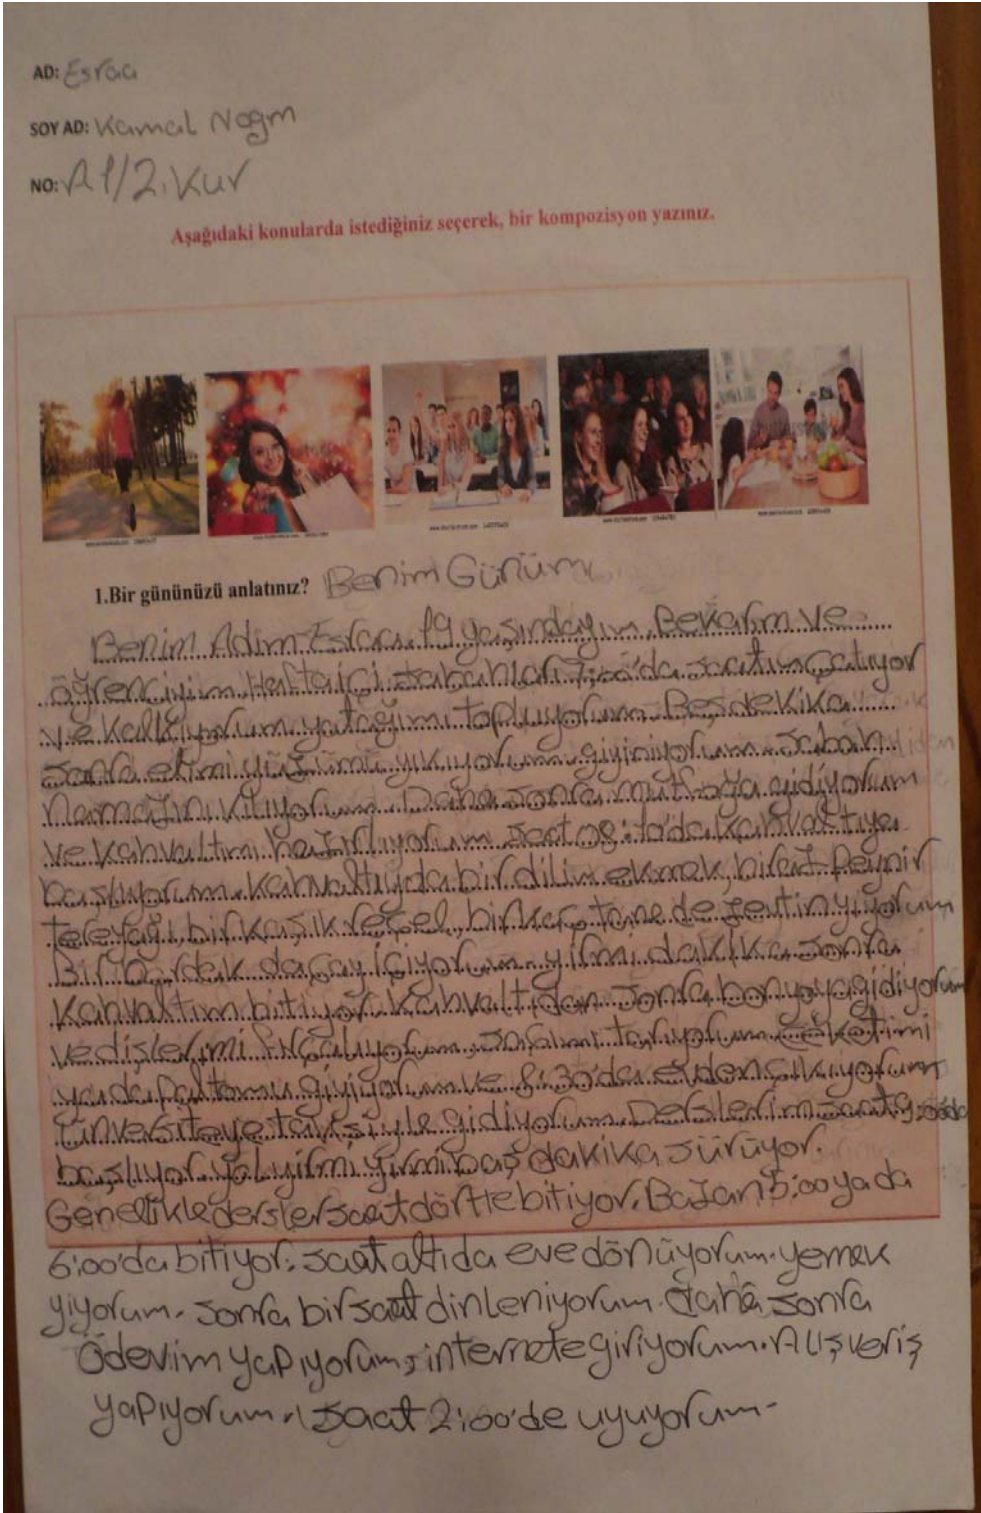 AD: Esraa
SOY AD: Kamal Nogm
NO: A1/2.Kur
Aşağıdaki konularda istediğiniz seçerek, bir kompozisyon yazınız.
1.Bir gününüzü anlatınız? Benim Günüm
Benim Adım Esraa. 19 yaşındayım. Bekarım ve
öğrenciyim. Hafta içi sabahları 7:00'da saatim çalıyor
ve kalkıyorum. yatağımı topluyorum. Beş dekika
sonra elimi yüzümü yıkıyorum. giyiniyorum. sabah
namazını kılıyorum. Daha sonra mutfağa gidiyorum
ve kahvaltımı hazırlıyorum. saat 08:10'da kahvaltıya
başlıyorum. kahvaltıyda bir dilim ekmek, biraz Peynir
tereyağı, bir kaşık reçel, birkaç tane de zeytin yiyorum
Bir bardak da çay içiyorum. yirmi dakika sonra
kahvaltım bitiyor. kahvaltıdan sonra banyoya gidiyorum
ve dişlerimi fırçalıyorum. saçımı tarıyorum. ceketimi
ya da paltomu giyiyorum ve 8:30'da evden çıkıyorum
Ünversiteye taksiyle gidiyorum. Derslerim saat 9:00'da
başlıyor. yol yirmi yirmi baş dakika sürüyor.
Genellikle dersler saat dörtte bitiyor. Bazan 5:00 ya da
6:00'da bitiyor. saat altıda eve dönüyorum. yemek
yiyorum. sonra bir saat dinleniyorum. daha sonra
Ödevim yapıyorum, internete giriyorum. Alış veriş
yapıyorum. saat 2:00'de uyuyorum.